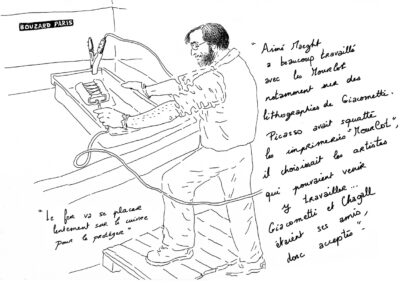 BOUZARD PARIS
" Aimé Maeght
a beaucoup travaillé
avec les Mourlot
notamment sur des
lithographies de Giacometti.
Picasso avait squatté
les imprimeries "Mourlot",
il choisissait les artistes
qui pouvaient venir
y travailler...
Giacometti et Chagall
étaient ses amis,
donc acceptés "
"Le fer va se placer
lentement sur le cuivre
pour le protéger"